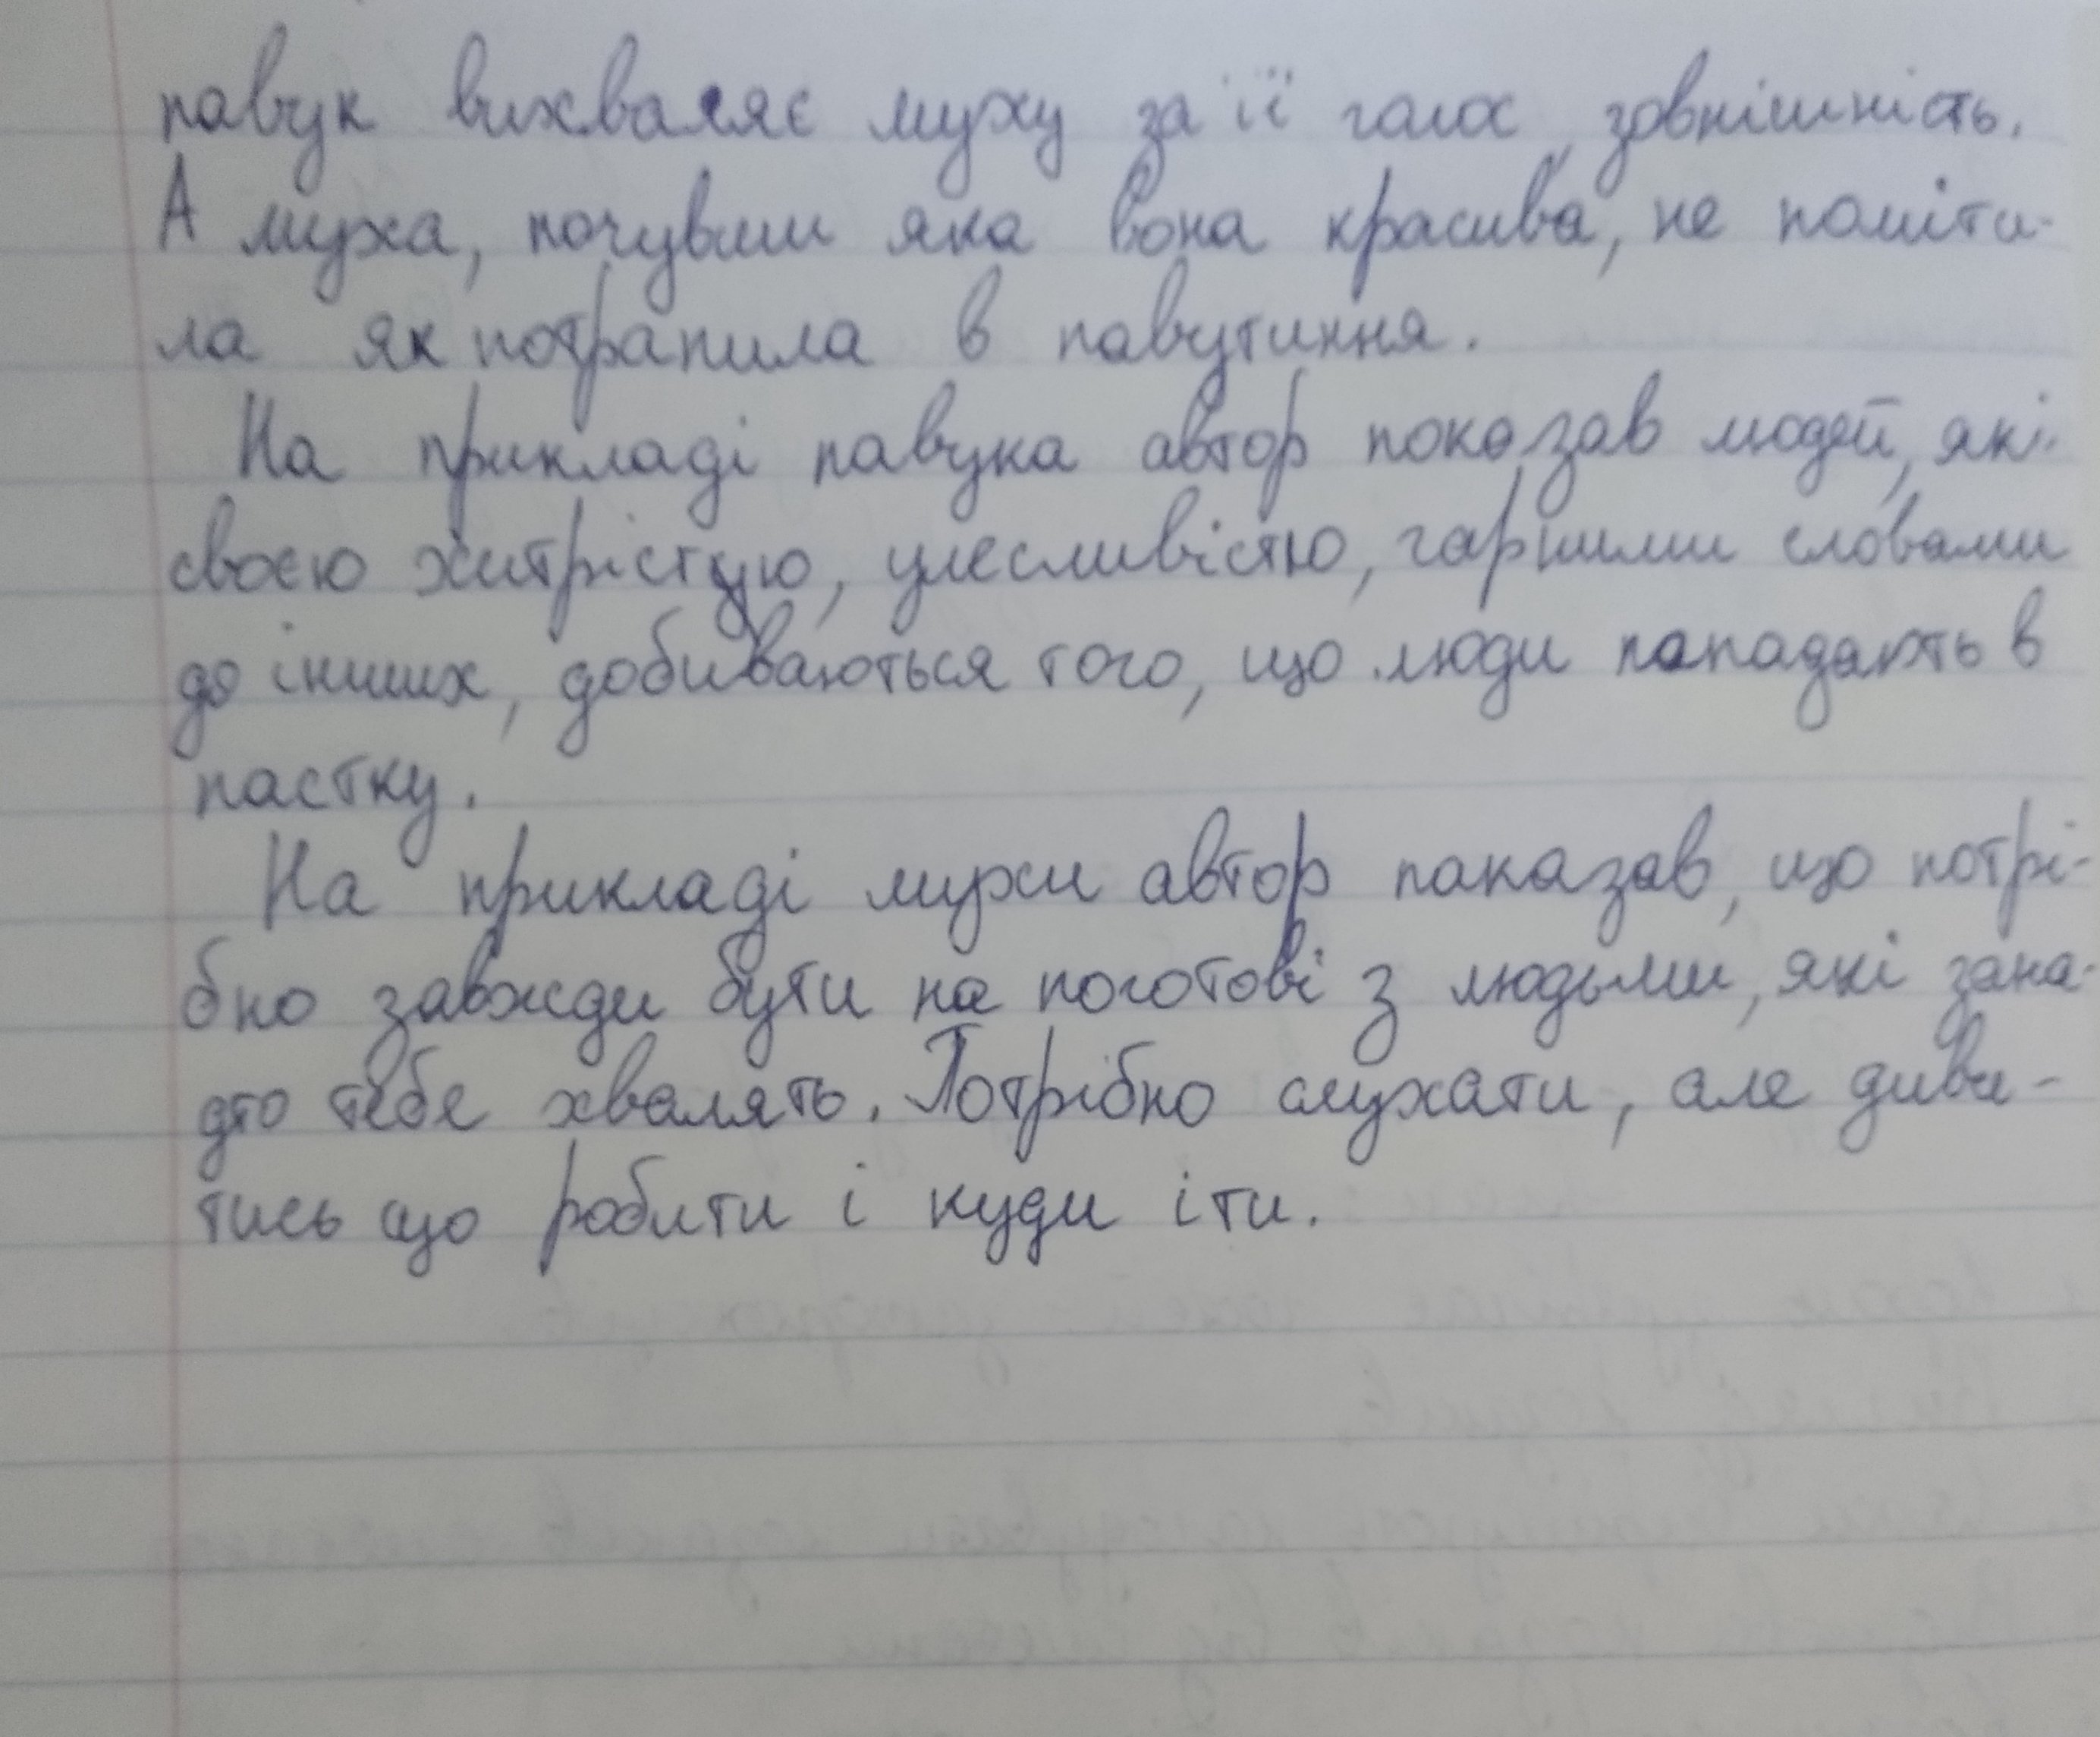 павук вихваляє муху за її голос, зовнішність.
А муха, почувши яка вона красива, не поміти-
ла як потрапила в павутиння.
На прикладі павука автор показав людей, які
своєю хитрістцю, улесливістю, гарними словами
до інших, добиваються того, що люди попадають в
пастку.
На прикладі мухи автор показав, що потрі-
бно завжди бути на поготові з людьми, які зана-
дто тебе хвалять. Потрібно слухати, але диви-
тись що робити і куди іти.